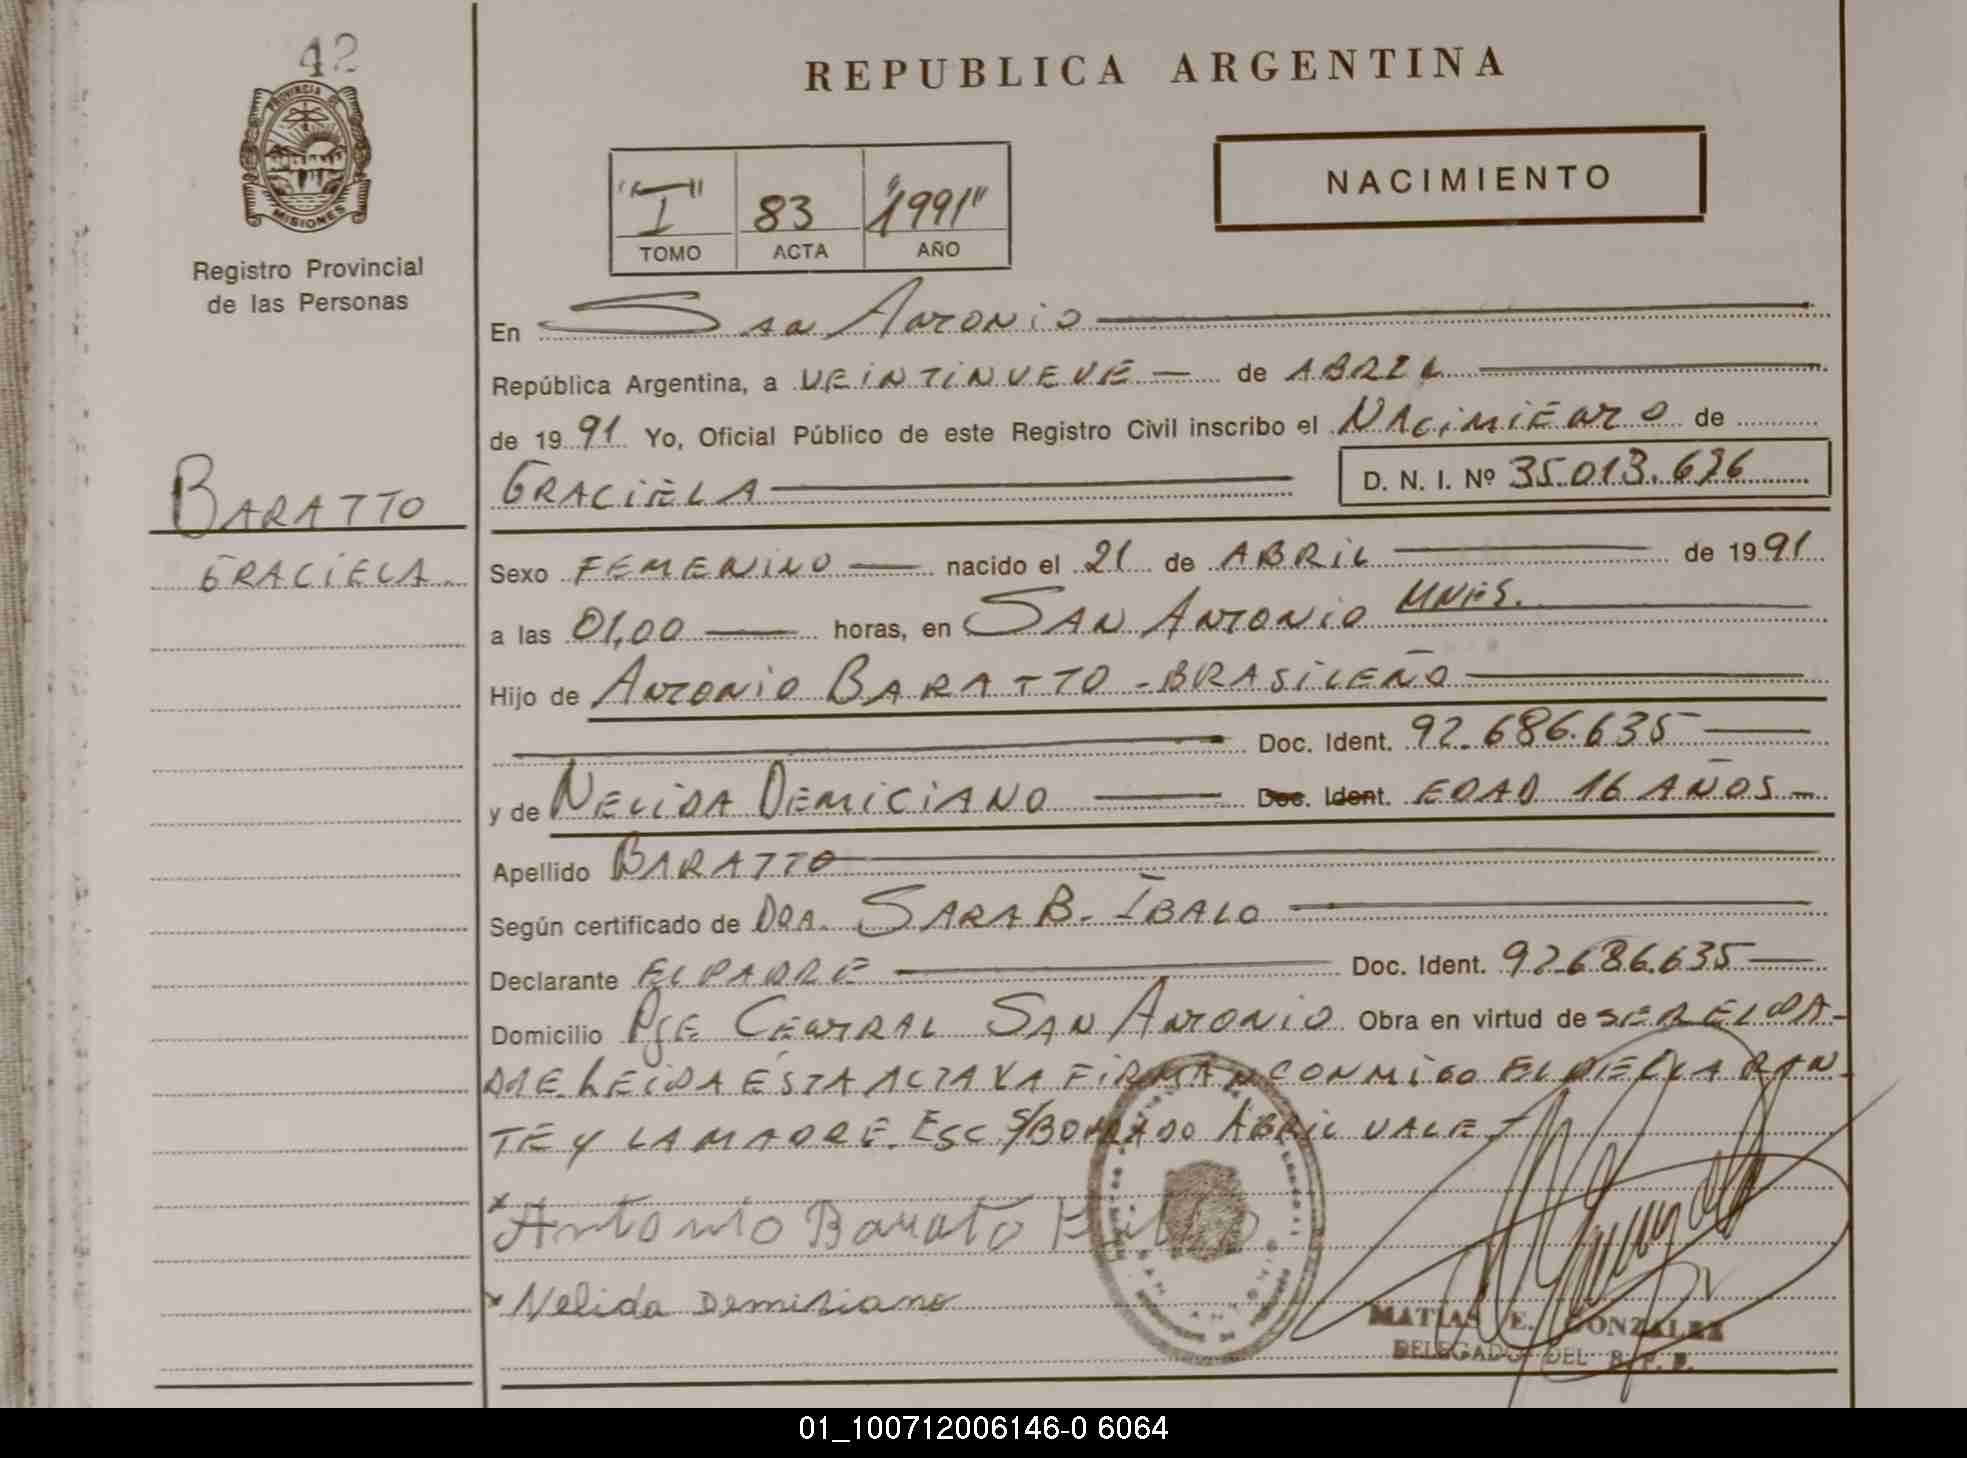 42
PROVINCIA DE
MISIONES
Registro Provincial
de las Personas
BARATTO
GRACIELA
REPUBLICA ARGENTINA
"I" 83 "1991"
TOMO ACTA AÑO
NACIMIENTO
En San Antonio
República Argentina, a VEINTINUEVE de ABRIL
de 1991 Yo, Oficial Público de este Registro Civil inscribo el NACIMIENTO de
GRACIELA D. N. I. Nº 35.013.636
Sexo FEMENINO nacido el 21 de ABRIL de 1991
a las 01,00 horas, en SAN ANTONIO MNES.
Hijo de ANTONIO BARATTO - BRASILEÑO
Doc. Ident. 92.686.635
y de NELIDA DEMICIANO Doc. Ident. EDAD 16 AÑOS
Apellido BARATTO
Según certificado de DRA. SARA B. IBALO
Declarante EL PADRE Doc. Ident. 92.686.635
Domicilio Pje CENTRAL SAN ANTONIO Obra en virtud de SER EL PA-
DRE LEIDA ESTA ACTA LA FIRMAN CONMIGO EL DECLARAN-
TE Y LA MADRE. ESC S/BORRADO ABRIL VALE
x Antonio Barato
x Nelida Demisiano
MATIAS E. GONZALEZ
DELEGADO DEL R. P. P.
01_100712006146-0 6064